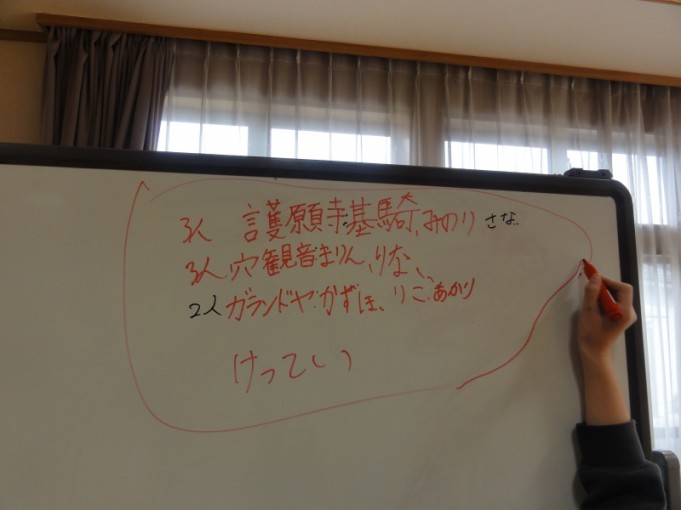 3人 護願寺:基騎,みのり さな
3人 穴観音:まりん,りな、
2人 ガランドヤ:かずほ、りこ、あかり
けってい